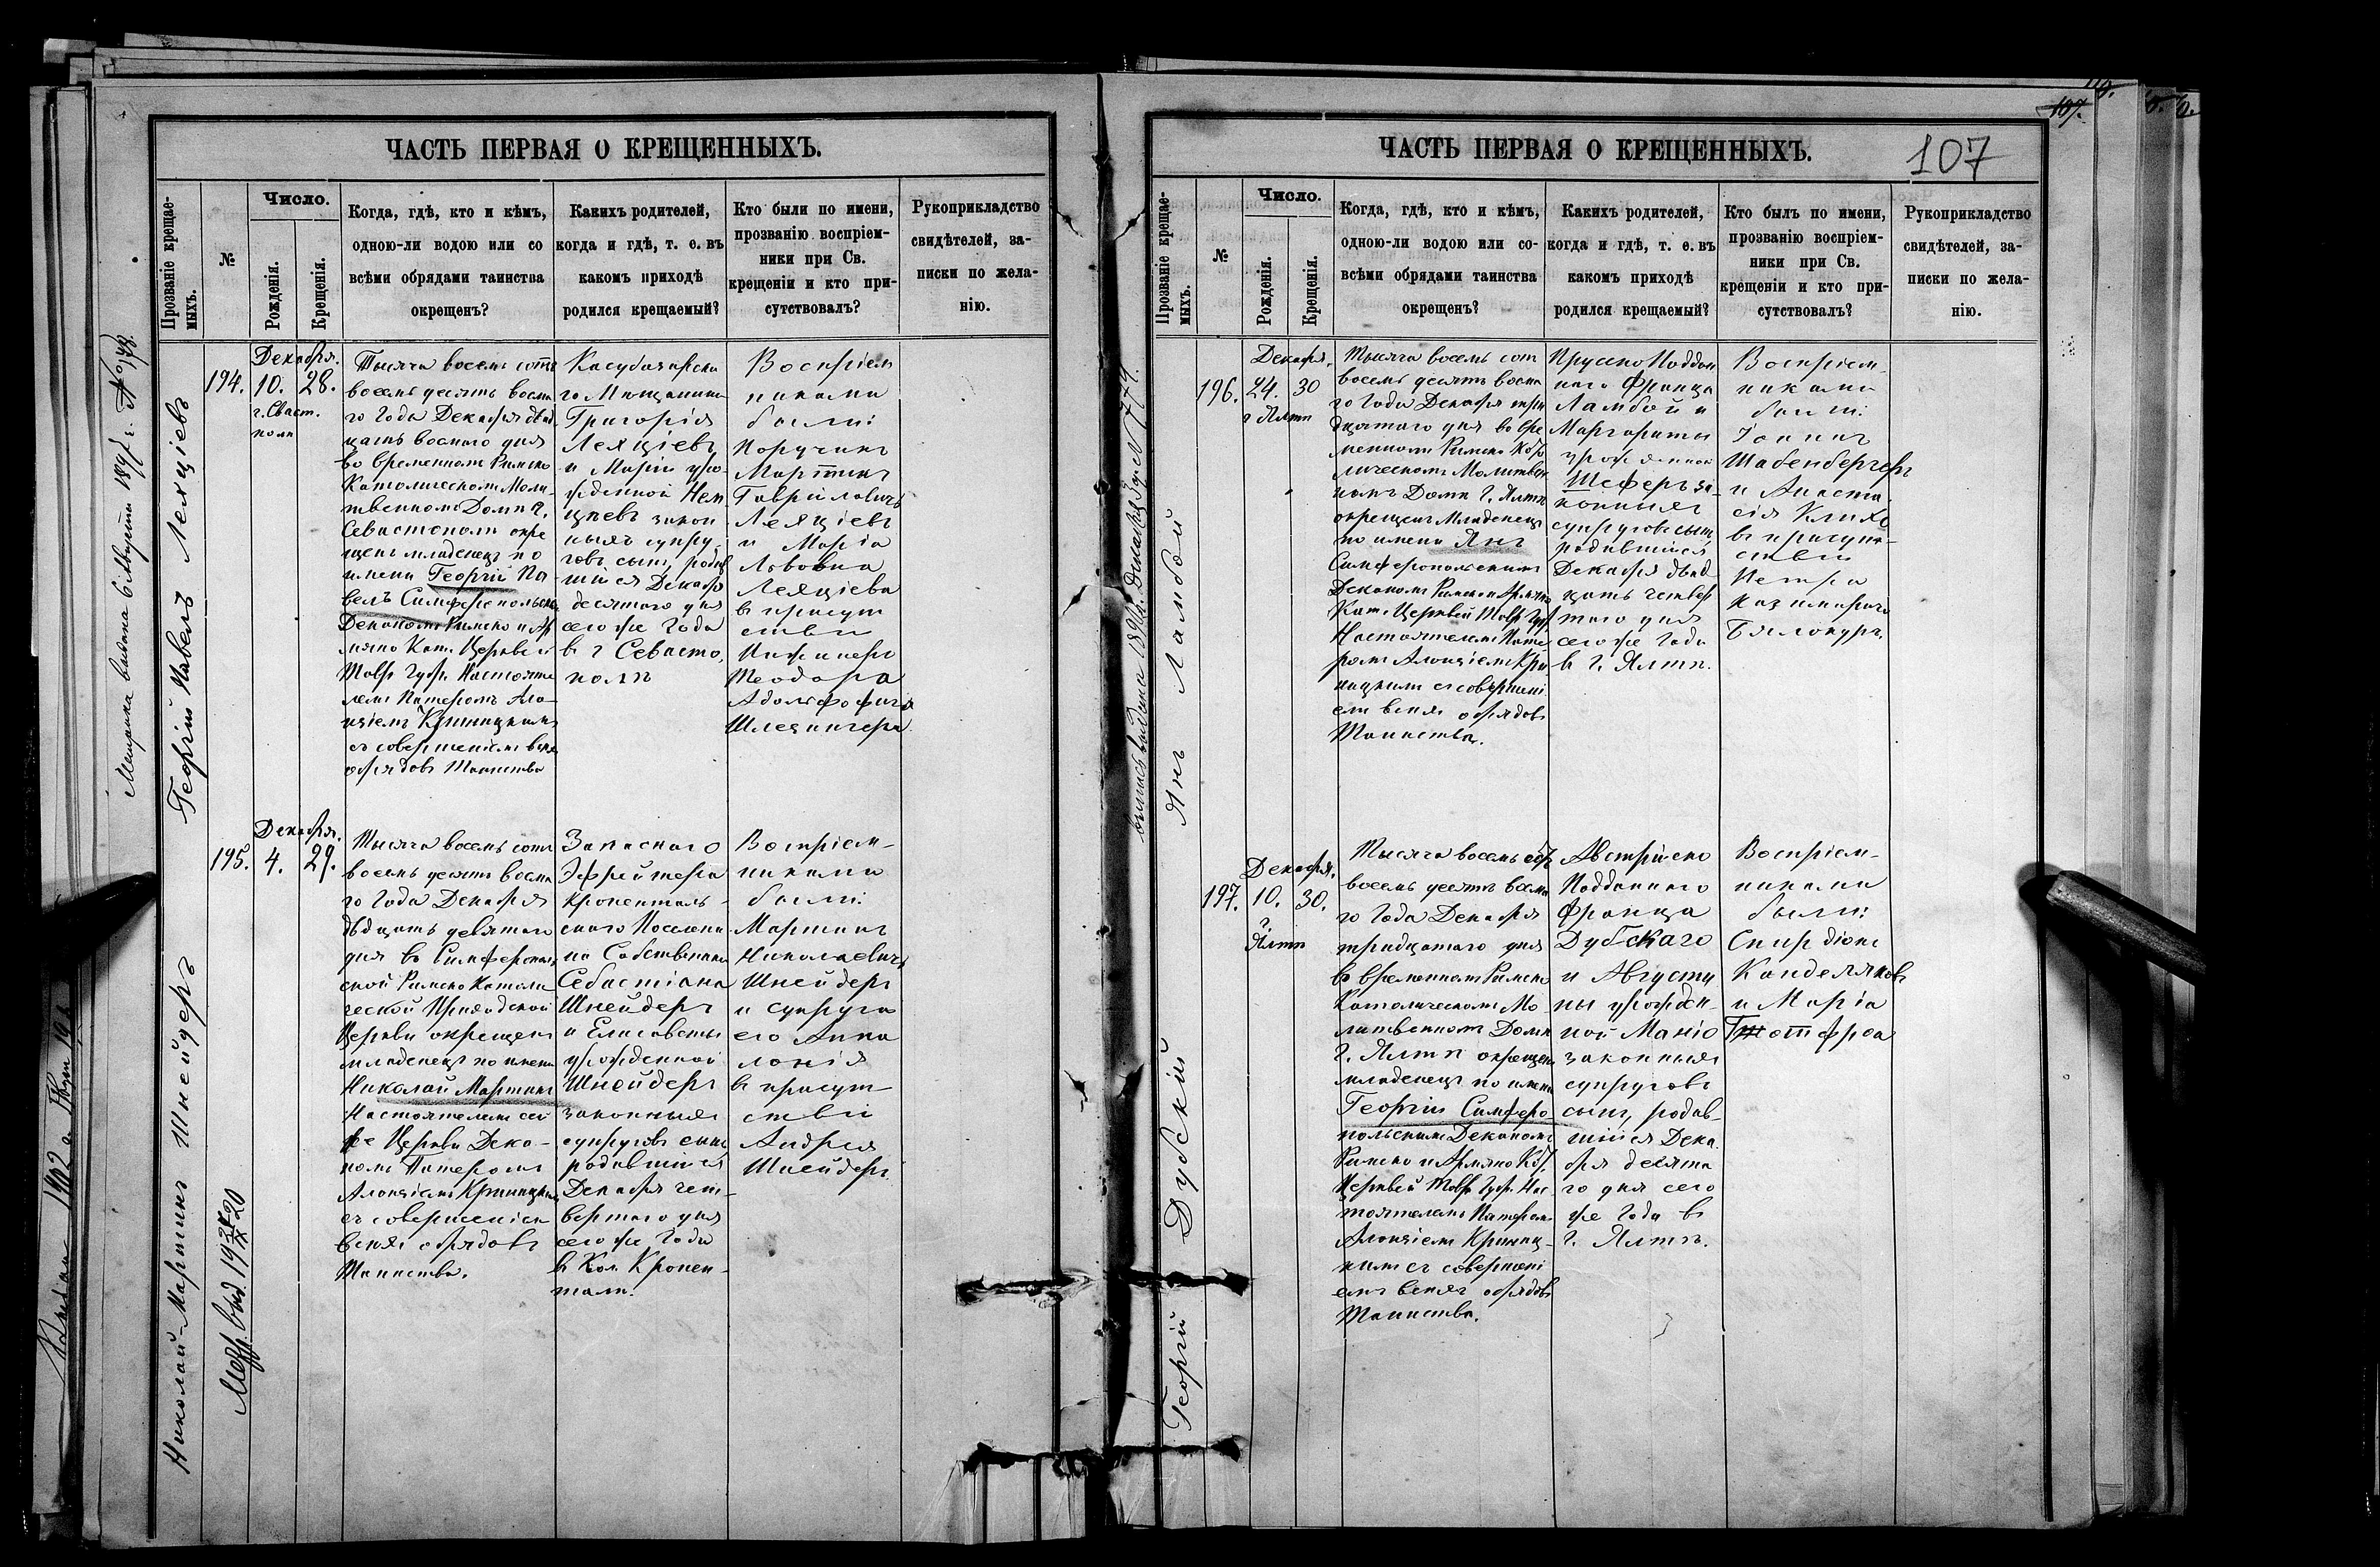 ЧАСТЬ ПЕРВАЯ О КРЕЩЕННЫХЪ.
Прозваніе крещае-
мыхъ.
№
Число.
Рожденія.
Крещенія.
Когда, гдѣ, кто и кѣмъ,
одною-ли водою или со
всѣми обрядами таинства
окрещенъ?
Какихъ родителей,
когда и гдѣ, т. е. въ
какомъ приходѣ
родился крещаемый?
Кто были по имени,
прозванію воспріем-
ники при Св.
крещеніи и кто при-
сутствовалъ?
Рукоприкладство
свидѣтелей, за-
писки по жела-
нію.
Георгій Павелъ Леяціевъ
194.
Декабря.
10. 28.
Тысяча восемь сотъ
восемь десять восьма
го Года Декабря двад
цать восмого дня
во временномъ Римско
Католическомъ Моли-
твенномъ Домѣ г.
Севастополя окре
щенъ младенецъ по
имени Георгій Па
велъ Симферопольским
Деканомъ Римско и Ар
мяно Кат. Церквей
Тавр. Губ. Настояте
лемъ Патеромъ Ало-
изіемъ
съ совершеніемъ всѣхъ
обрядовъ Таинства
го Мещанина
Григорія
Леяціевъ
и Маріи уро-
жденной Нем
цаевъ закон
ныхъ супру-
говъ сынъ, родив
шійся Декабр
десятого дня
сего же Года
въ г Севасто
полѣ
Воспріем
никами
были:
Поручикъ
Мартинъ
Гавриловичъ
Леяціевъ
и Марія
Львовна
Леяціева
въ присут
ствіи
Инженера
Теодора
Адольфовича
Шлезингера.
Николай-Мартинъ Шнейдеръ
195.
Декабря.
4. 29.
Тысяча восемь сотъ
восемь десять восьма
го Года Декабря
двадцать девятого
дня въ Симферополь
ской Римско Католи
ческой Приходской
Церкви окрещенъ
младенецъ по имени
Николай Мартинъ
Настоятелемъ сей
же Церкви Дека-
номъ Патеромъ
Алоизіемъ
съ совершеніемъ
всѣхъ обрядовъ
Таинства.
Запаснаго
Эфрейтера
Кроненталь-
скаго Поселяни
на Собственника
Себастіана
Шнейдеръ
и Елисаветы
урожденной
Шнейдеръ
законныхъ
супруговъ сынъ
родившійся
Декабря чет-
вертаго дня
сего же Года
въ Кол. Кронен-
таль.
Воспріем-
никами
были:
Мартинъ
Николаевичъ
Шнейдеръ
и супруга
его Аппо
лонія
въ присут-
ствіи
Андрея
Шнейдеръ.
ЧАСТЬ ПЕРВАЯ О КРЕЩЕННЫХЪ.
107
107.
Прозваніе крещае-
мыхъ.
№
Число.
Рожденія.
Крещенія.
Когда, гдѣ, кто и кѣмъ,
одною-ли водою или со-
всѣми обрядами таинства
окрещенъ?
Какихъ родителей,
когда и гдѣ, т. е. въ
какомъ приходѣ
родился крещаемый?
Кто былъ по имени,
прозванію воспріем-
ники при Св.
крещеніи и кто при-
сутствовалъ?
Рукоприкладство
свидѣтелей, за-
писки по жела-
нію.
Янъ Ламбой
196.
Декабря.
24. 30
г Ялтѣ
Тысяча восемь сот
восемь десять восьма
го Года Декабря три
дцатого дня во вре
менномъ Римско
Молитвен
номъ Домѣ г. Ялтѣ
окрещенъ Младенецъ
по имени Янъ
Симферопольскимъ
Деканомъ Римско и Армяно
Кат. Церквей Тавр Губ
Настоятелемъ Пате
ромъ Алоизіемъ
съ совершені
емъ всѣхъ обрядовъ
Таинства.
Прусско Поддан
наго Франца
Ламбой и
Маргариты
урожденной
Шеферъ за-
конныхъ
супруговъ сынъ
родившійся
Декабря двад
цать четвер
таго дня
сего же Года
въ г. Ялтѣ.
Воспріем-
никами
были:
Іоаннъ
Шабенбергеръ
и Анаста-
сія
въ присут-
ствіи
Петра
Казимирича
Бялокуръ.
Георгій Дубскій
197.
Декабря.
10. 30.
г.
Ялтѣ
Тысяча восемь сот
восемь десять восьма
го Года Декабря
тридцатого дня
въ временномъ Римско
Католическомъ Мо
литвенномъ Домѣ
г. Ялтѣ окрещенъ
младенецъ по имени
Георгій Симферо-
польскимъ Деканомъ
Римско и Армяно
Церквей Тавр Губ. Нас-
тоятелемъ Патером
Алоизіемъ
съ совершені
емъ всѣхъ обрядовъ
Таинства.
Австрійско
Подданнаго
Франца
Дубскаго
и Августи
ны урожден-
ной Маніо
законныхъ
супруговъ
сынъ, родив-
шійся Дека
бря десята
го дня сего
же Года въ
г. Ялтѣ.
Воспріем-
никами
были:
Спиридіонъ
Канделяковъ
и Марія